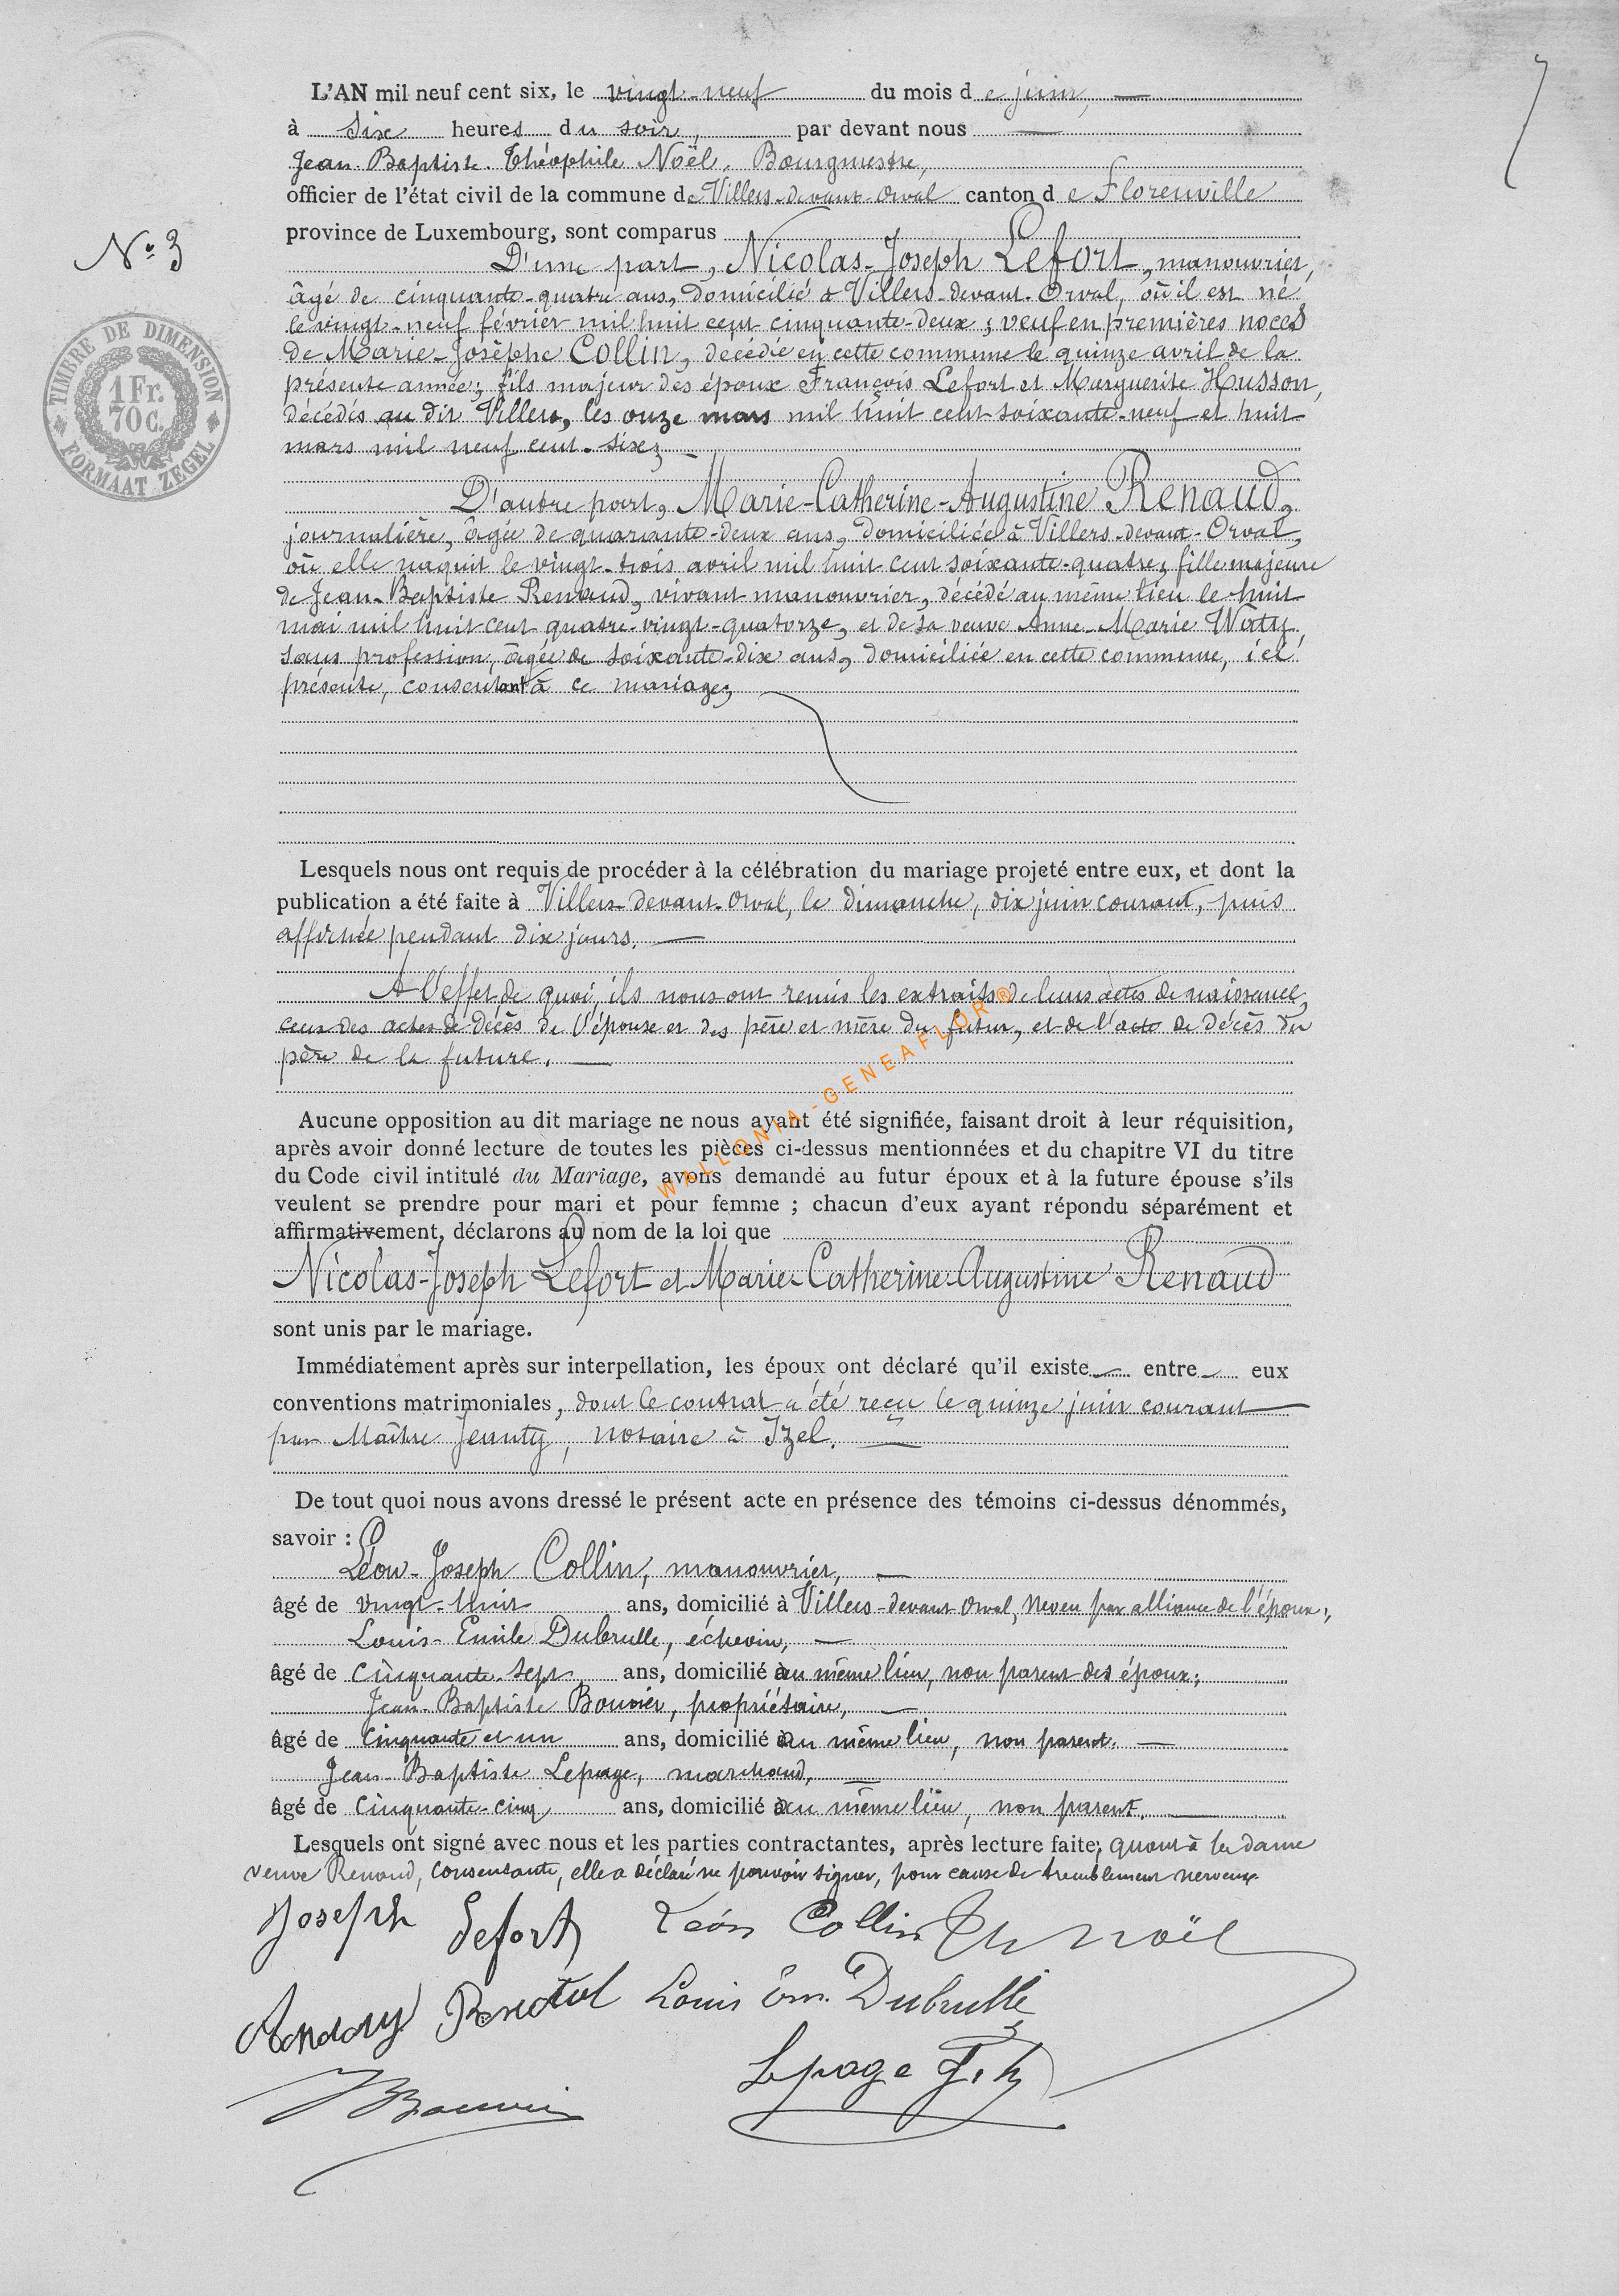 7
L'AN mil neuf cent six, le vingt-neuf du mois de juin, —
à six heures du soir, par devant nous —
Jean-Baptiste-Théophile Noël, Bourgmestre,
officier de l'état civil de la commune de Villers-devant-Orval canton de Florenville
province de Luxembourg, sont comparus
N° 3
D'une part, Nicolas-Joseph Lefort, manouvrier,
âgé de cinquante-quatre ans, domicilié à Villers-devant-Orval, où il est né
le vingt-neuf février mil huit cent cinquante-deux; veuf en premières noces
de Marie-Josèphe Collin, décédée en cette commune le quinze avril de la
présente année; fils majeur des époux François Lefort et Marguerite Husson,
décédés au dit Villers, les onze mars mil huit cent soixante-neuf et huit
mars mil neuf cent-six; —
TIMBRE DE DIMENSION
1 Fr.
70 c.
FORMAAT ZEGEL
D'autre part, Marie-Catherine-Augustine Renaud,
journalière, âgée de quarante-deux ans, domiciliée à Villers-devant-Orval,
où elle naquit le vingt-trois avril mil huit cent soixante-quatre; fille majeure
de Jean-Baptiste Renaud, vivant manouvrier, décédé au même lieu le huit
mai mil huit cent quatre-vingt-quatorze, et de sa veuve Anne-Marie Watry,
sans profession, âgée de soixante-dix ans, domiciliée en cette commune, ici
présente, consentant à ce mariage;
Lesquels nous ont requis de procéder à la célébration du mariage projeté entre eux, et dont la
publication a été faite à Villers-devant-Orval, le dimanche, dix juin courant, puis
affichée pendant dix jours. —
A l'effet de quoi, ils nous ont remis les extraits de leurs actes de naissance,
ceux des actes de décès de l'épouse et des père et mère du futur, et de l'acte de décès du
père de la future. —
WALLONIA-GENEAFLOR®
Aucune opposition au dit mariage ne nous ayant été signifiée, faisant droit à leur réquisition,
après avoir donné lecture de toutes les pièces ci-dessus mentionnées et du chapitre VI du titre
du Code civil intitulé du Mariage, avons demandé au futur époux et à la future épouse s'ils
veulent se prendre pour mari et pour femme ; chacun d'eux ayant répondu séparément et
affirmativement, déclarons au nom de la loi que
Nicolas-Joseph Lefort et Marie-Catherine-Augustine Renaud
sont unis par le mariage.
Immédiatement après sur interpellation, les époux ont déclaré qu'il existe — entre — eux
conventions matrimoniales, dont le contrat a été reçu le quinze juin courant
par Maître Jeunty, notaire à Izel. —
De tout quoi nous avons dressé le présent acte en présence des témoins ci-dessus dénommés,
savoir :
Léon-Joseph Collin, manouvrier, —
âgé de vingt-huit ans, domicilié à Villers-devant-Orval, neveu par alliance de l'époux;
Louis-Emile Dubrulle, échevin, —
âgé de cinquante-sept ans, domicilié au même lieu, non parent des époux;
Jean-Baptiste Bouvier, propriétaire, —
âgé de cinquante et un ans, domicilié au même lieu, non parent. —
Jean-Baptiste Lepage, marchand, —
âgé de cinquante-cinq ans, domicilié au même lieu, non parent. —
Lesquels ont signé avec nous et les parties contractantes, après lecture faite; quant à la dame
veuve Renaud, consentante, elle a déclaré ne pouvoir signer, pour cause de tremblement nerveux.
Joseph Lefort Léon Collin Th Noël
Louis Em. Dubrulle
Lepage J.h
JBouvier